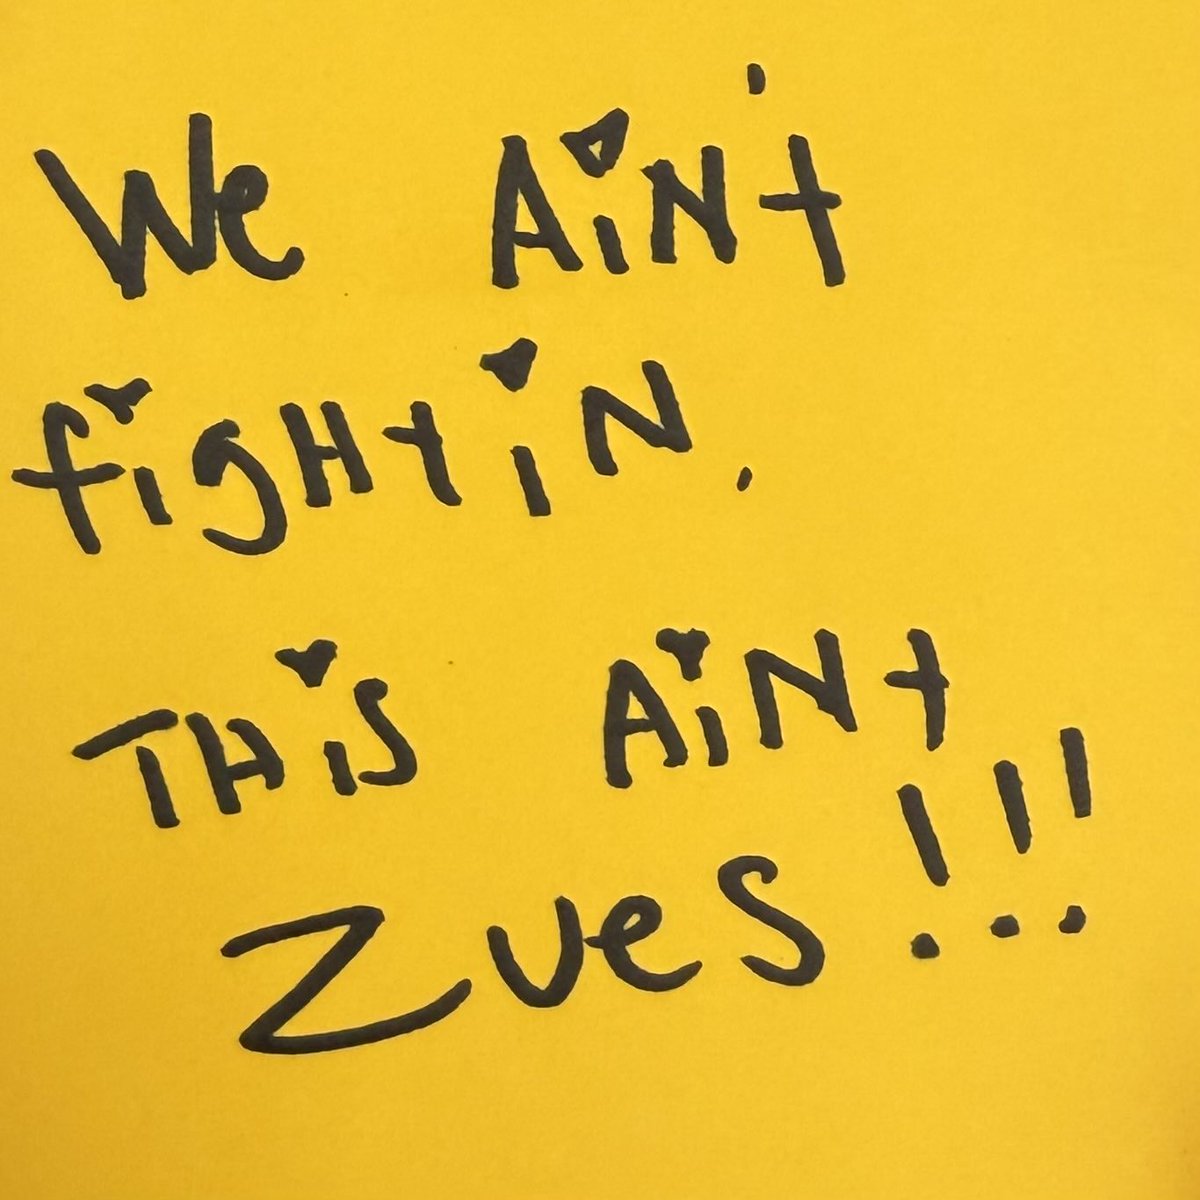 We AiN't
fiGHtiN.
THiS AiNt
ZUeS!!!